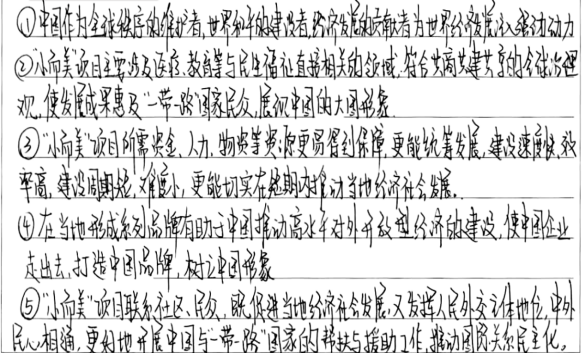 ①中国作为全球秩序的维护者,世界和平的建设者,经济发展的贡献者为世界经济发展注入强劲动力
②"小而美"项目主要涉及医疗、教育等与民生福祉直接相关的领域,符合共商共建共享的全球治理
观,使发展成果惠及"一带一路"国家民众,展现中国的大国形象.
③"小而美"项目所需资金、人力、物资等资源更易得到保障,更能统筹发展,建设速度快,效
率高,建设周期短,难度小,更能切实在短期内推动当地经济社会发展.
④在当地形成系列品牌有助于中国推动高水平对外开放型经济的建设,使中国企业
走出去,打造中国品牌,树立中国形象
⑤"小而美"项目联系社区、民众,既促进当地经济社会发展,又发挥人民外交主体地位,中外
民心相通,更好地开展中国与"一带一路"国家的帮扶与援助工作,推动国际关系民主化。